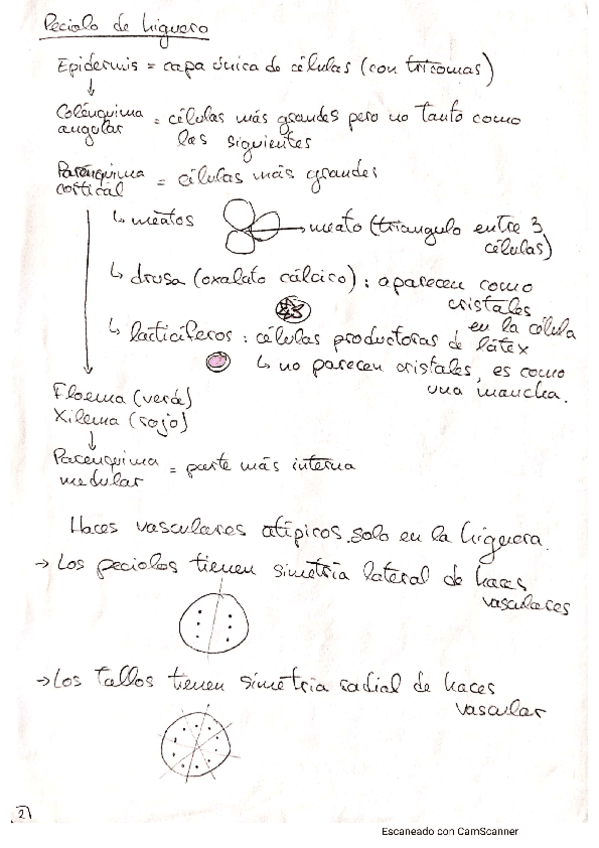 Peciolo de higuera
Epidermis = capa única de células (con tricomas)
↓
Colénquima angular = células más grandes pero no tanto como las siguientes
Parénquima cortical = células más grandes
↳ meatos → meato (triangulo entre 3 células)
↳ drusa (oxalato cálcico) : aparecen como cristales en la célula
↳ lacticíferos : células productoras de látex
↳ no parecen cristales, es como una mancha.
Floema (verde)
Xilema (rojo)
↓
Parenquima medular = parte más interna
Haces vasculares atípicos solo en la higuera.
→ Los peciolos tienen simetría lateral de haces vasculares
→ Los tallos tienen simetria radial de haces vascular
2
Escaneado con CamScanner